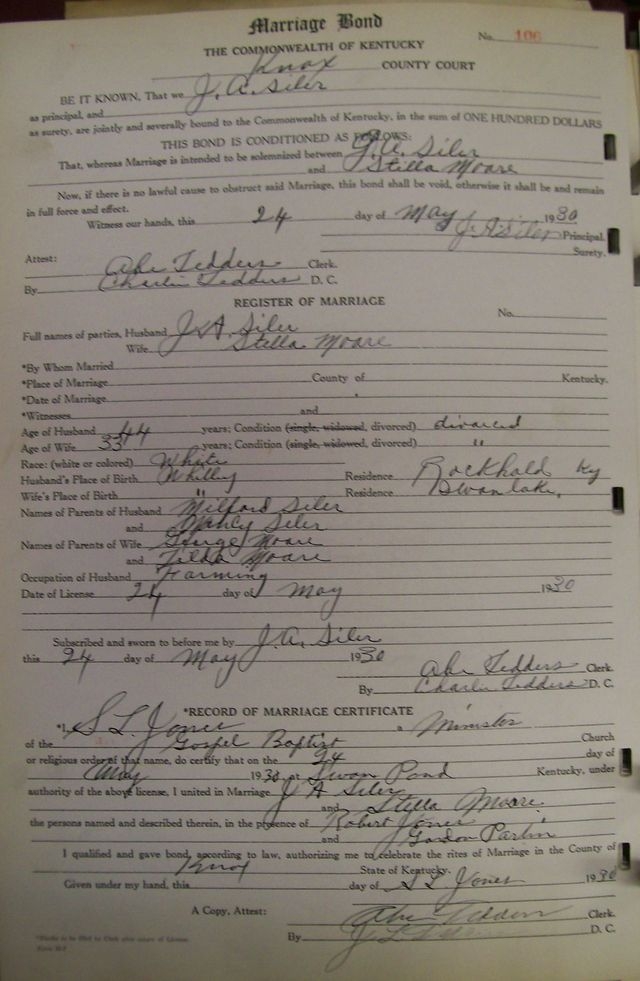 Marriage Bond
No. 106
THE COMMONWEALTH OF KENTUCKY
Knox COUNTY COURT
BE IT KNOWN, That we J. A. Siler
as principal, and
as surety, are jointly and severally bound to the Commonwealth of Kentucky, in the sum of ONE HUNDRED DOLLARS
THIS BOND IS CONDITIONED AS FOLLOWS:
That, whereas Marriage is intended to be solemnized between J. A. Siler
and Stella Moore
Now, if there is no lawful cause to obstruct said Marriage, this bond shall be void, otherwise it shall be and remain
in full force and effect.
Witness our hands, this 24 day of May 1930
J. A. Siler Principal.
Surety.
Attest:
Abe Tedders Clerk.
By Charlie Tedders D. C.
REGISTER OF MARRIAGE
No.
Full names of parties, Husband J. A. Siler
Wife Stella Moore
*By Whom Married
*Place of Marriage County of Kentucky.
*Date of Marriage
*Witnesses and
Age of Husband 44 years; Condition (single, widowed, divorced) divorced
Age of Wife 33 years; Condition (single, widowed, divorced) "
Race: (white or colored) White
Husband's Place of Birth Whitley Residence Rockhold Ky
Wife's Place of Birth " Residence Swan lake,
Names of Parents of Husband Milford Siler
and Nancy Siler
Names of Parents of Wife George Moore
and Tilda Moore
Occupation of Husband Farming
Date of License 24 day of May 1930
Subscribed and sworn to before me by J. A. Siler
this 24 day of May 1930
Abe Tedders Clerk.
By Charlie Tedders D. C.
*RECORD OF MARRIAGE CERTIFICATE
*I, S L Jones a Minister
of the Gospel Baptist Church
or religious order of that name, do certify that on the 24 day of
May 1930 at Swan Pond Kentucky, under
authority of the above license, I united in Marriage J A Siler
and Stella Moore
the persons named and described therein, in the presence of Robert Jones
and Gordon Partin
I qualified and gave bond, according to law, authorizing me to celebrate the rites of Marriage in the County of
Knox State of Kentucky.
Given under my hand, this day of S L Jones 1930
A Copy, Attest: Abe Tedders Clerk.
By D. C.